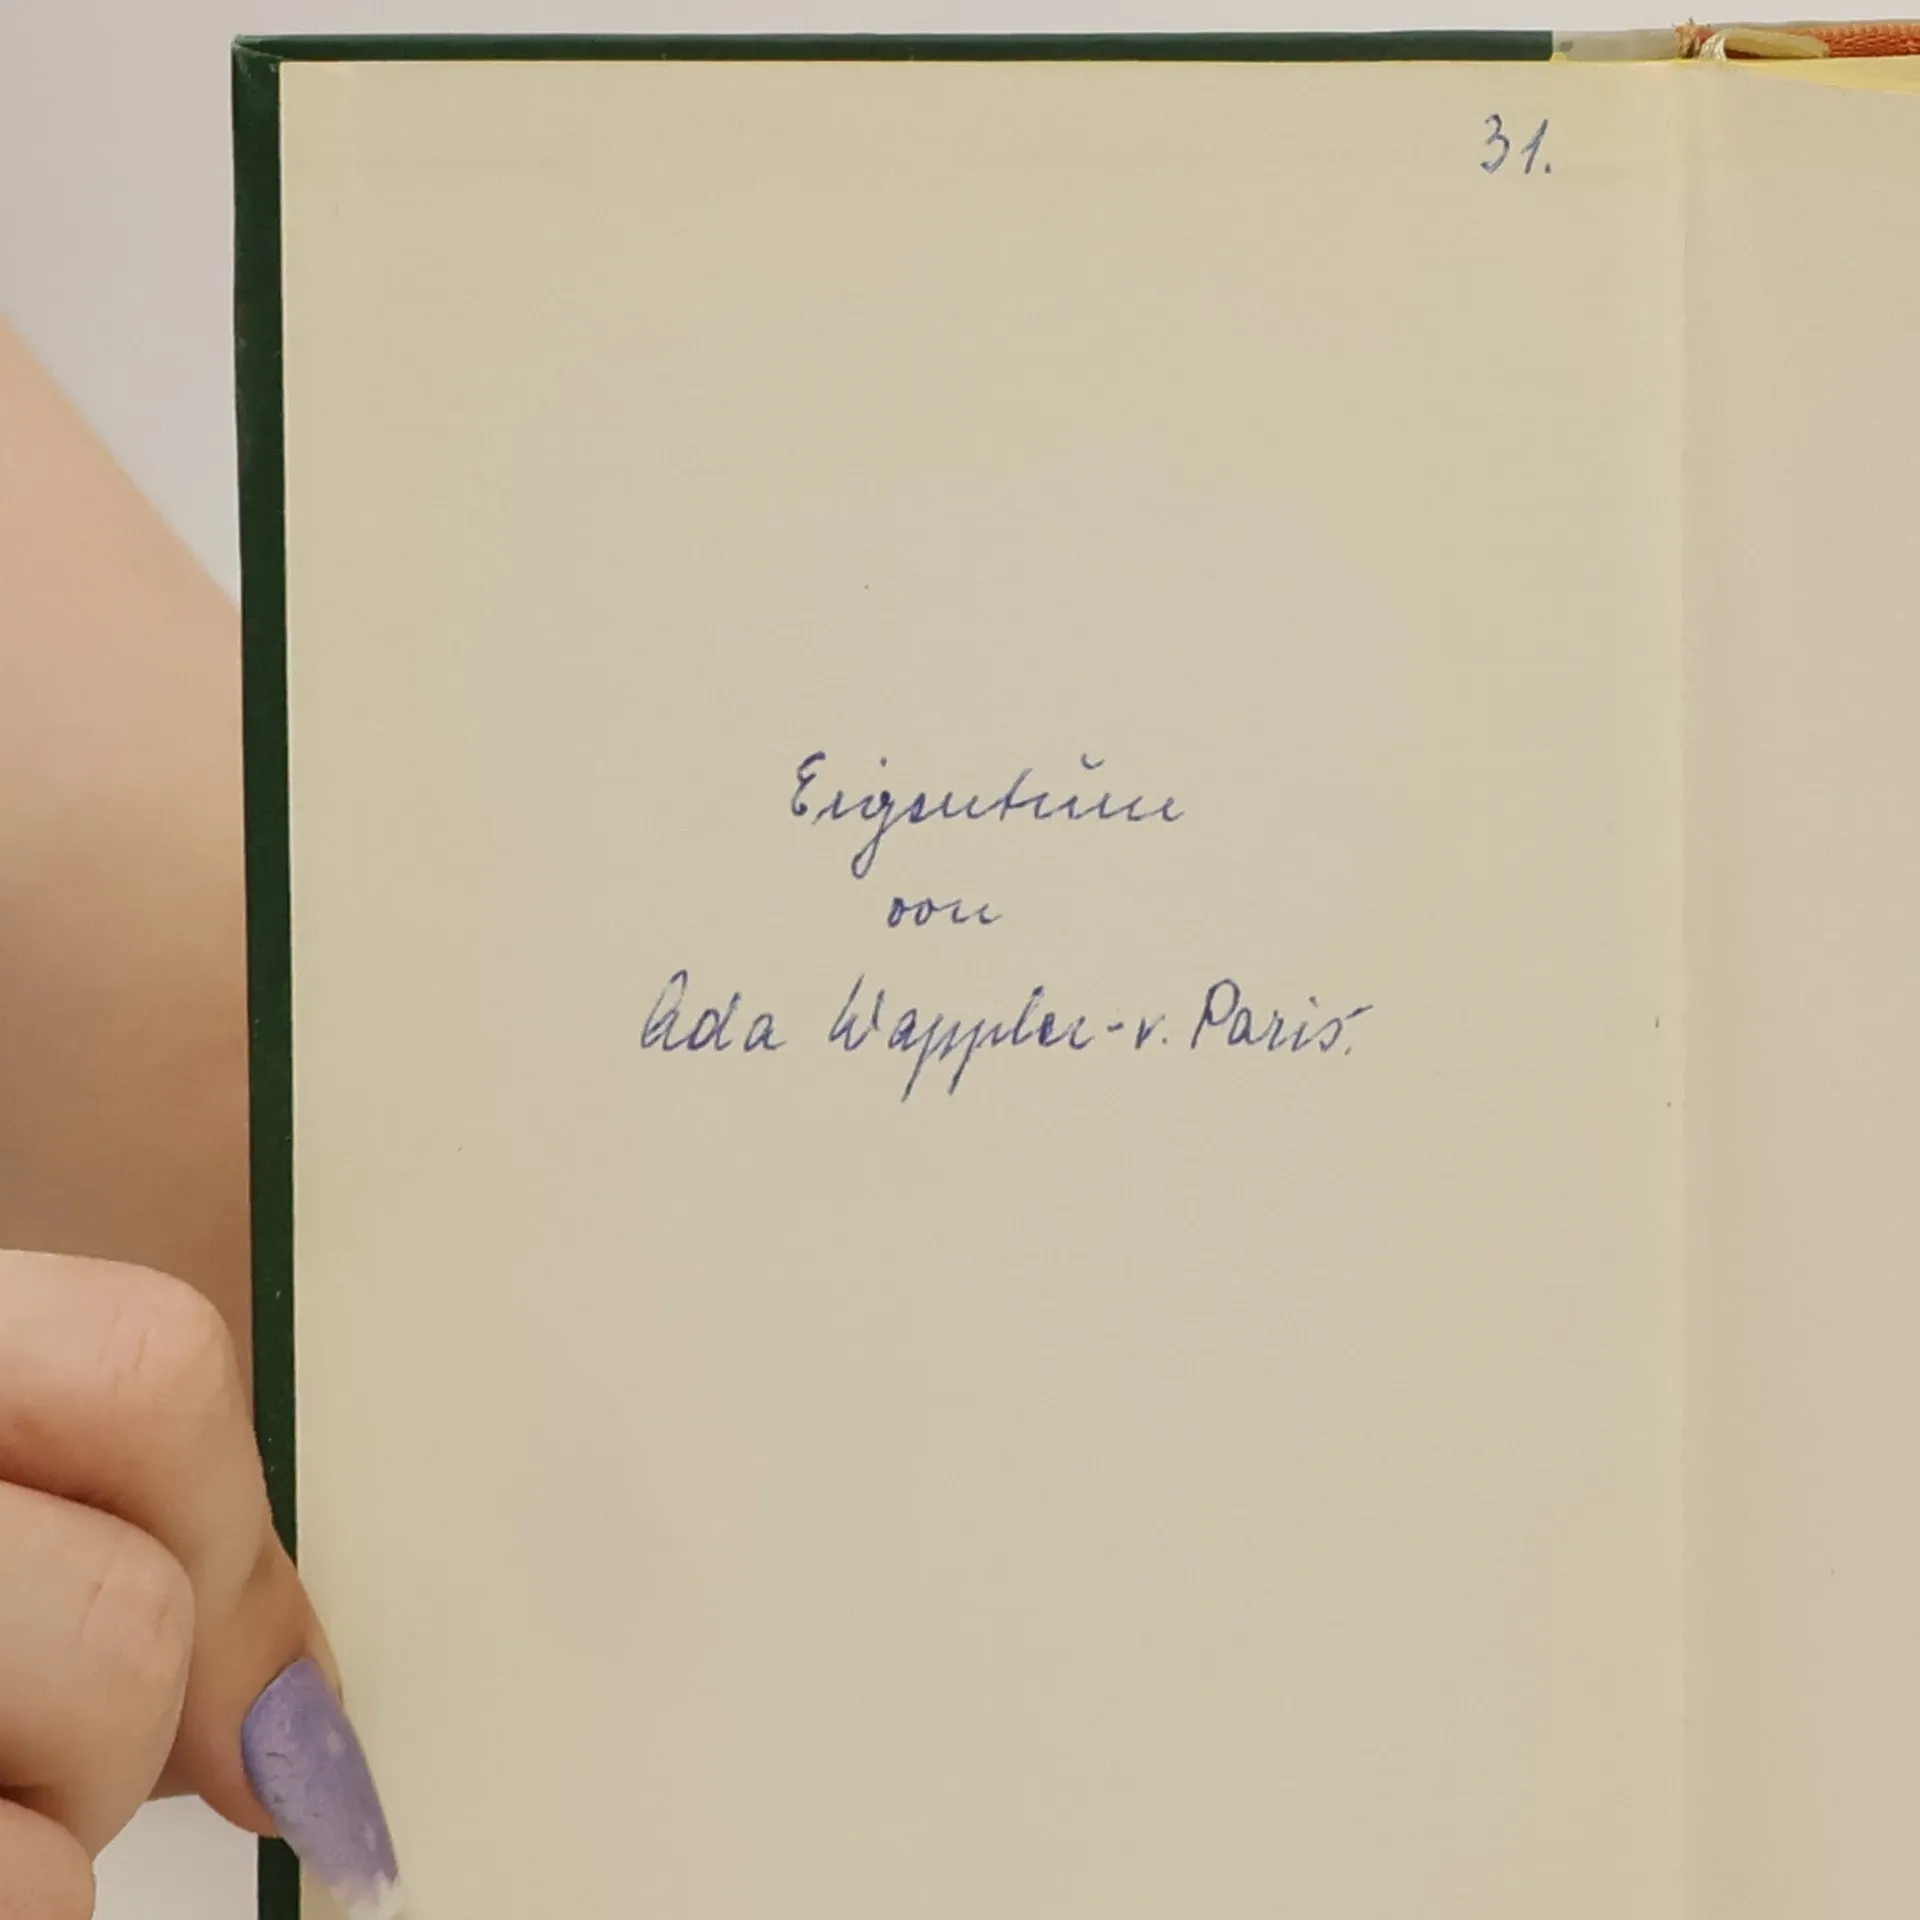 31.
Eigentum
von
Ada Wappler-v. Paris.